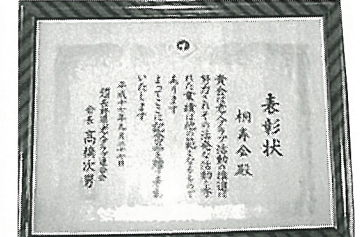 表彰状
桐寿会殿
貴会は老人クラブ活動の推進に
努力されその活発な活動と
れた業績は他の模範となるもので
あります
よってここに記念の
いたします
平成十七年九月二十七日
長野県老人クラブ連合会
会長 高橋次男